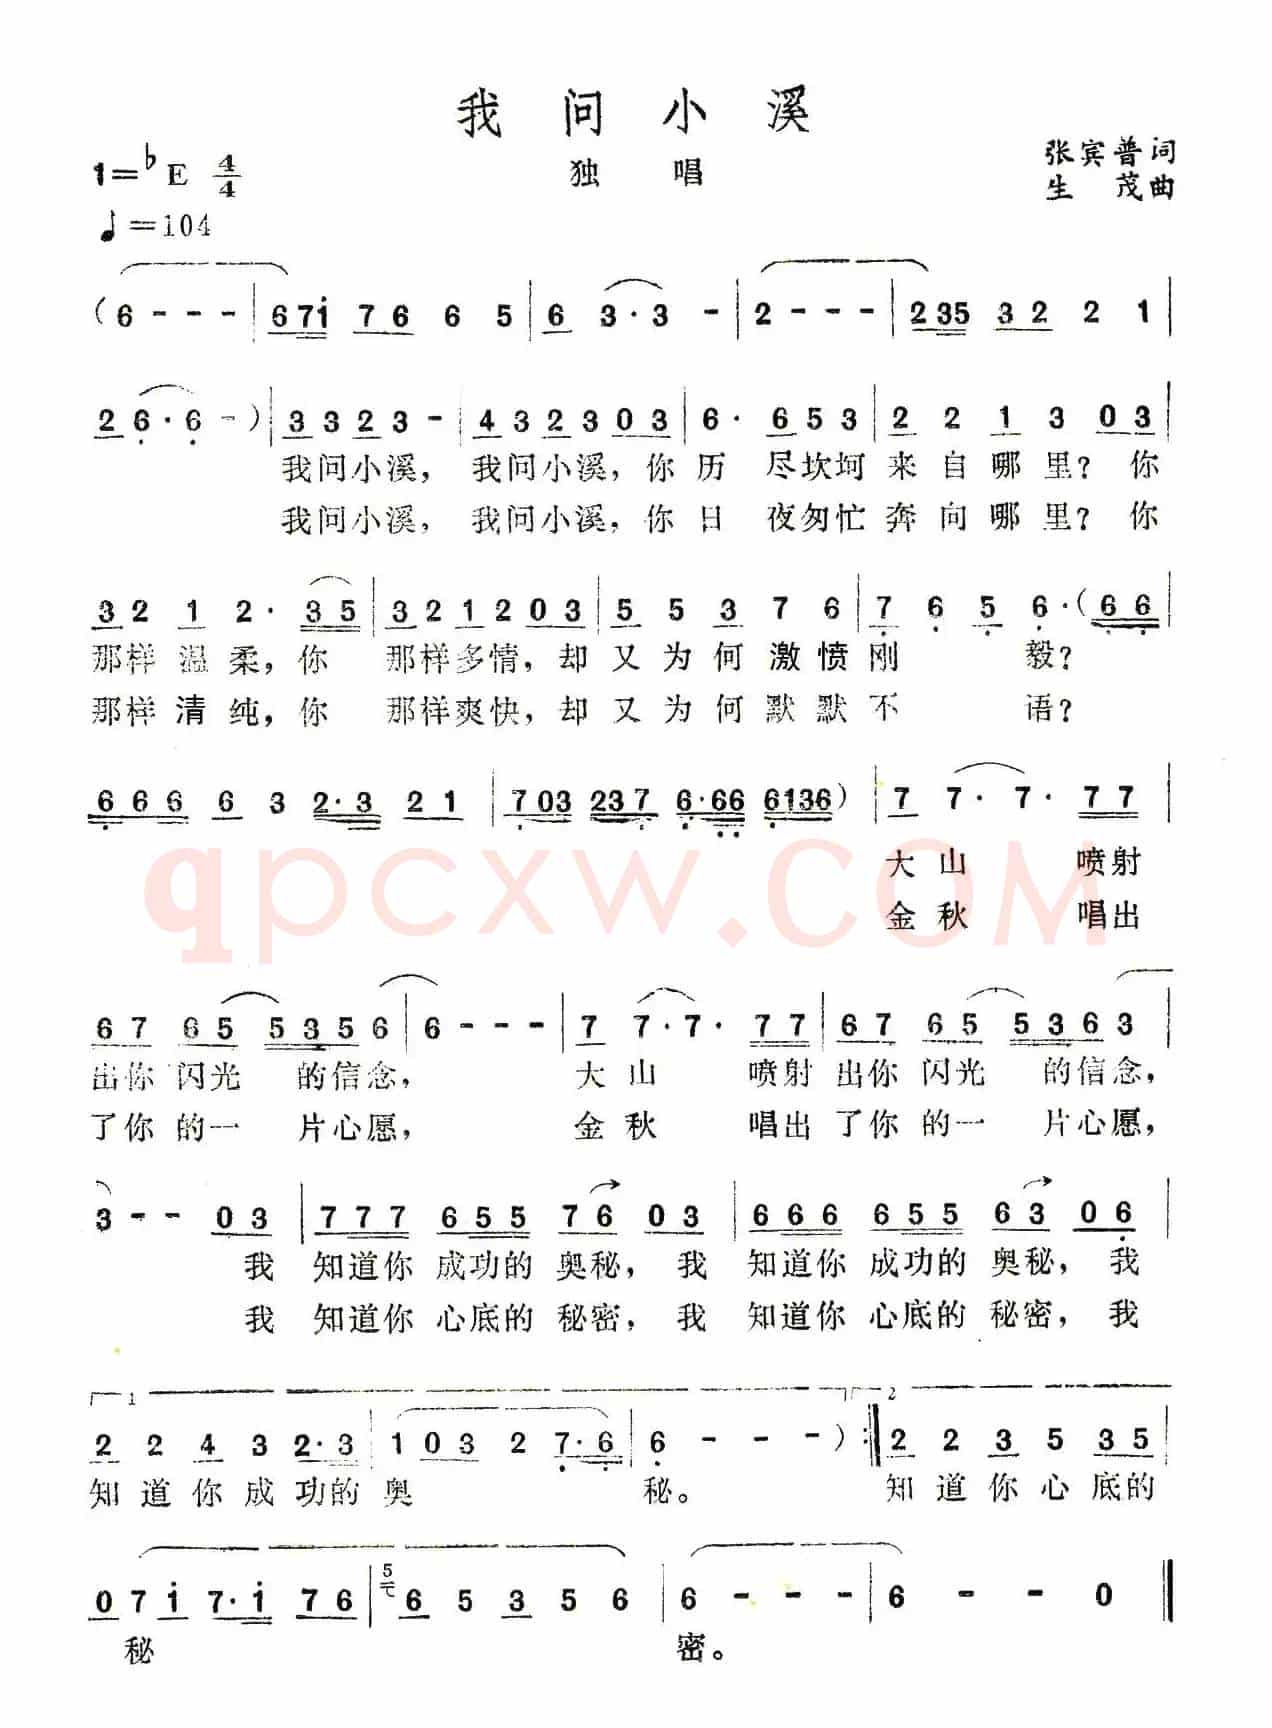 我问小溪
独唱
1=♭E 4/4
张宾普词
生茂曲
♩=104
(6 - - - | 671 76 6 5 | 6 3·3 - | 2 - - - | 235 32 2 1 |
2 6·6 -) | 3 3 2 3 - | 4 3 2 3 0 3 | 6· 6 5 3 | 2 2 1 3 0 3 |
我问小溪，我问小溪，你历尽坎坷来自哪里？你
我问小溪，我问小溪，你日夜匆忙奔向哪里？你
3 2 1 2· 3 5 | 3 2 1 2 0 3 | 5 5 3 7 6 | 7 6 5 6·(6 6 |
那样温柔，你那样多情，却又为何激愤刚毅？
那样清纯，你那样爽快，却又为何默默不语？
6 6 6 6 3 2·3 2 1 | 7 0 3 2 3 7 6·6 6 6 1 3 6) | 7 7· 7· 7 7 |
大山喷射
金秋唱出
qpcxw.COM
6 7 6 5 5 3 5 6 | 6 - - - | 7 7·7· 7 7 | 6 7 6 5 5 3 6 3 |
出你闪光的信念，大山喷射出你闪光的信念，
了你的一片心愿，金秋唱出了你的一片心愿，
3 - - 0 3 | 7 7 7 6 5 5 7 6 0 3 | 6 6 6 6 5 5 6 3 0 6 |
我知道你成功的奥秘，我知道你成功的奥秘，我
我知道你心底的秘密，我知道你心底的秘密，我
1 2
2 2 4 3 2·3 | 1 0 3 2 7·6 | 6 - - -) :| 2 2 3 5 3 5 |
知道你成功的奥秘。知道你心底的
0 7 1 7·1 7 6 | 5 6 5 3 5 6 | 6 - - - | 6 - - 0 ‖
秘密。